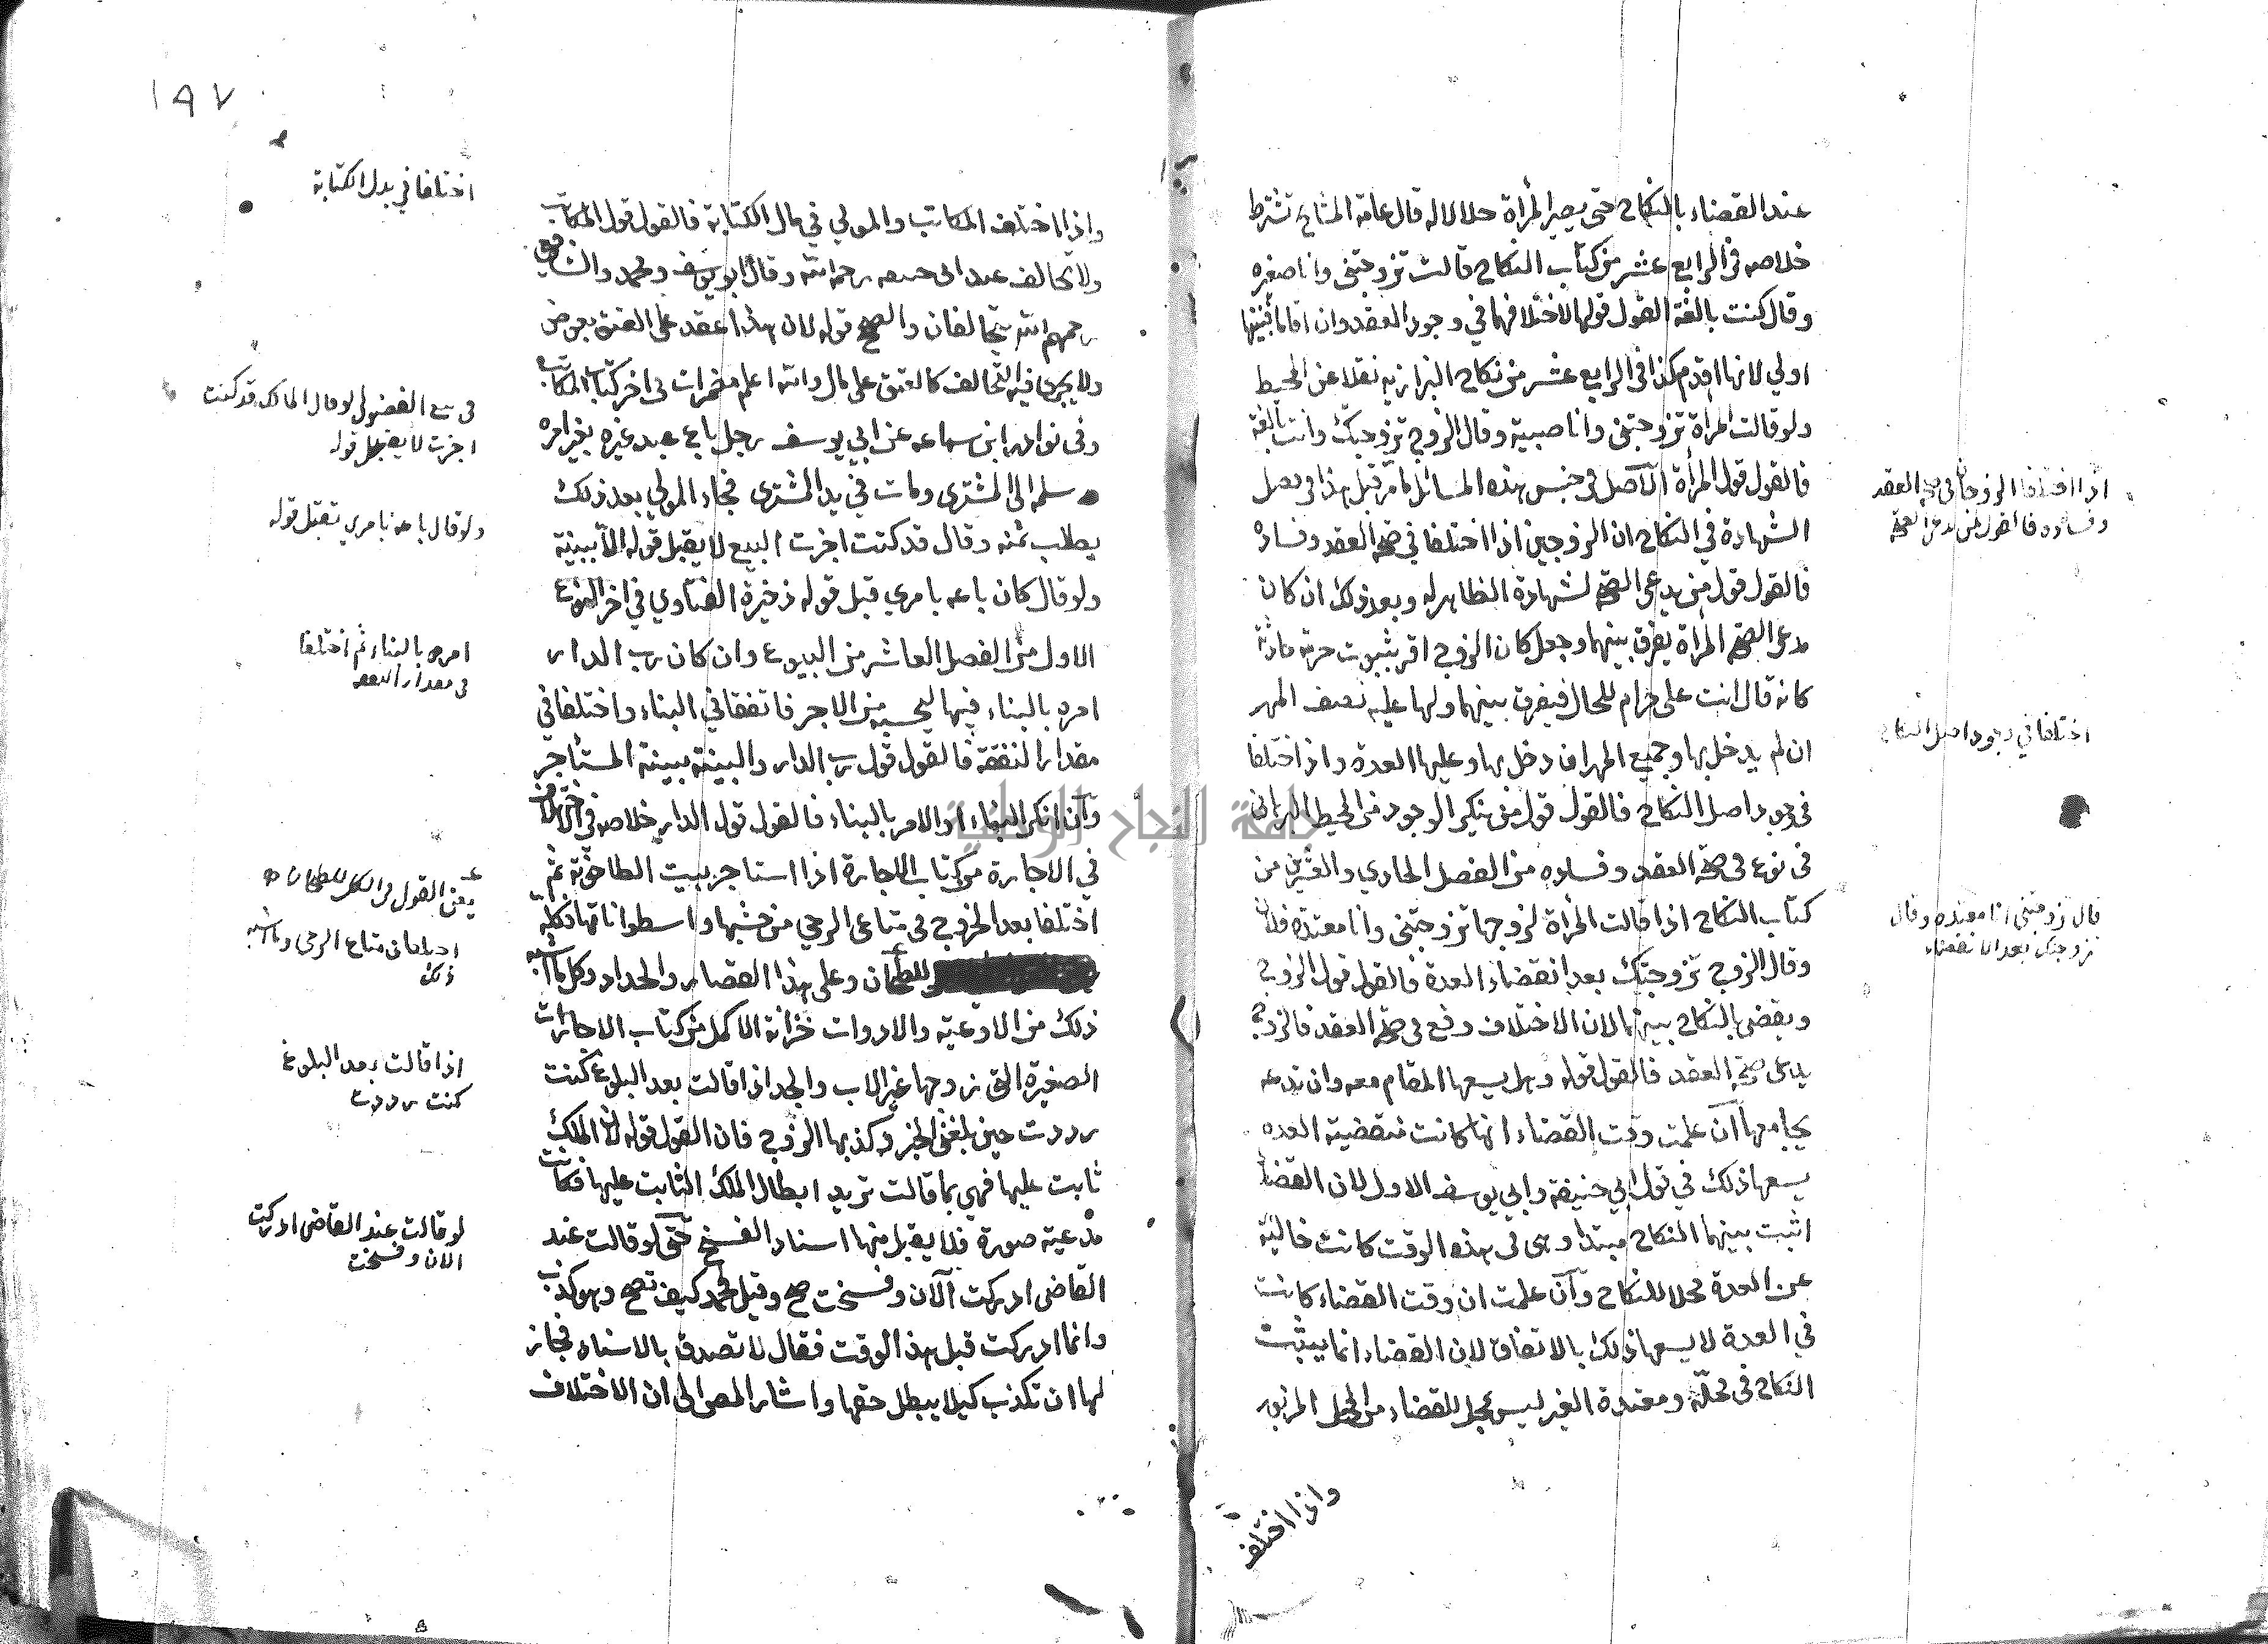 عند القضاء بالنكاح حتى يصير المرأة حلالا له قال عامة المشايخ تشترط
خلاصه فى الرابع عشر من كتاب النكاح قالت تزوجتنى وانا صغيره
وقال كنت بالغة القول قولها لاختلافهما في وجود العقد وان اقاما فبينتها
اولي لانها اقدم كذا فى الرابع عشر من نكاح البزازيه نقلا عن المحيط
ولو قالت المرأة تزوجتنى وانا صبية وقال الزوج تزوجتك وانت بالغة
فالقول قول المرأة الاصل فى جنس هذه المسائل ما مر قبل هذا فى فصل
الشهادة في النكاح ان الزوجين اذا اختلفا في صحة العقد وفساده
فالقول قول من يدعى الصحة لشهادة الظاهر له وبعد ذلك ان كان
مدعى الصحة المرأة يفرق بينهما وجعل كان الزوج اقر بثبوت حرمة حادثة
كانه قال انت على حرام للحال فيفرق بينهما ولها عليه نصف المهر
ان لم يدخل بها وجميع المهر ان دخل بها وعليها العدة واذا اختلفا
فى وجود اصل النكاح فالقول قول من ينكر الوجود من المحيط البرهانى
فى نوع فى صحة العقد وفساده من الفصل الحادي والعشرين من
كتاب النكاح اذا قالت المرأة لزوجها تزوجتنى وانا معتدة فلان
وقال الزوج تزوجتك بعد انقضاء العدة فالقول قول الزوج
ويقضى بالنكاح بينهما لان الاختلاف وقع فى صحة العقد فالزوج
يدعى صحة العقد فالقول قوله وهل يسعها المقام معه وان تدعه
يجامعها ان علمت وقت القضاء انها كانت منقضية العده
يسعها ذلك في قول ابي حنيفة وابي يوسف الاول لان القضا
اثبت بينهما النكاح مبتدا وهى فى هذه الوقت كانت خالية
عن العدة محلا للنكاح وان علمت ان وقت القضاء كانت
في العدة لا يسعها ذلك بالاتفاق لان القضاء انما يثبت
النكاح فى محله ومعتدة الغير ليس بمحل للقضاء من المحل المزبور
واذا اختلف
اذا اختلفا الزوجان فى صحة العقد
وفساده فالقول لمن يدعى الصحة
اختلفا في وجود اصل النكاح
قال زوجتنى انا معتدة وقال
تزوجتك بعد الانقضاء
١٨٧
واذا اختلف المكاتب والمولي في مال الكتابة فالقول قول المكاتب
ولا تحالف عند ابى حنيفه رحمه الله وقال ابو يوسف ومحمد والشافعي
رحمهم الله يتحالفان والصحيح قوله لان هذا عقد على العتق بعوض
ولا يجرى فيه التحالف كالعتق على مال والله اعلم مضمرات فى اخر كتاب المكاتب
وفى نوادر ابن سماعه عن ابي يوسف رجل باع عبد غيره بغير امره
و سلمه الى المشترى ومات في يد المشترى فجاء المولي بعد ذلك
يطلب ثمنه وقال قد كنت اجزت البيع لا يقبل قوله الا ببينة
ولو قال كان باعه بامري قبل قوله ذخيرة الفتاوي في اخر النوع
الاول من الفصل العاشر من البيوع وان كان رب الدار
امره بالبناء فيها ليحسبه من الاجر فاتفقا في البناء واختلفا في
مقدار النفقة فالقول قول رب الدار والبينة بينة المستاجر
وان انكر البناء او الامر بالبناء فالقول قول الدار خلاصه في
في الاجارة من كتاب الاجارة اذا استاجر بيت الطاحونة ثم
اختلفا بعد الخروج فى متاع الرحي من خشبها واسطواناتها فكله
للطحان وعلى هذا القصار والحداد وكل ما اشبه
ذلك من الاوعية والادوات خزانة الاكمل من كتاب الاجارات
الصغيرة التى زوجها غير الاب والجد اذا قالت بعد البلوغ كنت
رددت حين بلغنى الخبر وكذبها الزوج فان القول قوله لان الملك
ثابت عليها فهي بما قالت تريد ابطال الملك الثابت عليها فكانت
مدعية صورة فلا يقبل منها اسناد الفسخ حتى لو قالت عند
القاضى ادركت الان وفسخت صح وقيل لمحمد كيف تصح وهو كذب
وانما ادركت قبل هذا الوقت فقال لا تصدق بالاسناد فجاز
لها ان تكذب كيلا يبطل حقها واشار المص الى ان الاختلاف
اختلفا في بدل الكتابة
فى بيع الفضولى لو قال المالك قد كنت
اجزت لا يقبل قوله
ولو قال باعه بامري يقبل قوله
امره بالبناء ثم اختلفا
فى مقدار النفقه
يعنى القول فى الكل للطحان
اختلفا فى متاع الرحى وما اشبه
ذلك
اذا قالت بعد البلوغ
كنت رددت
لو قالت عند القاضى ادركت
الان وفسخت
جامعة النجاح الوطنية